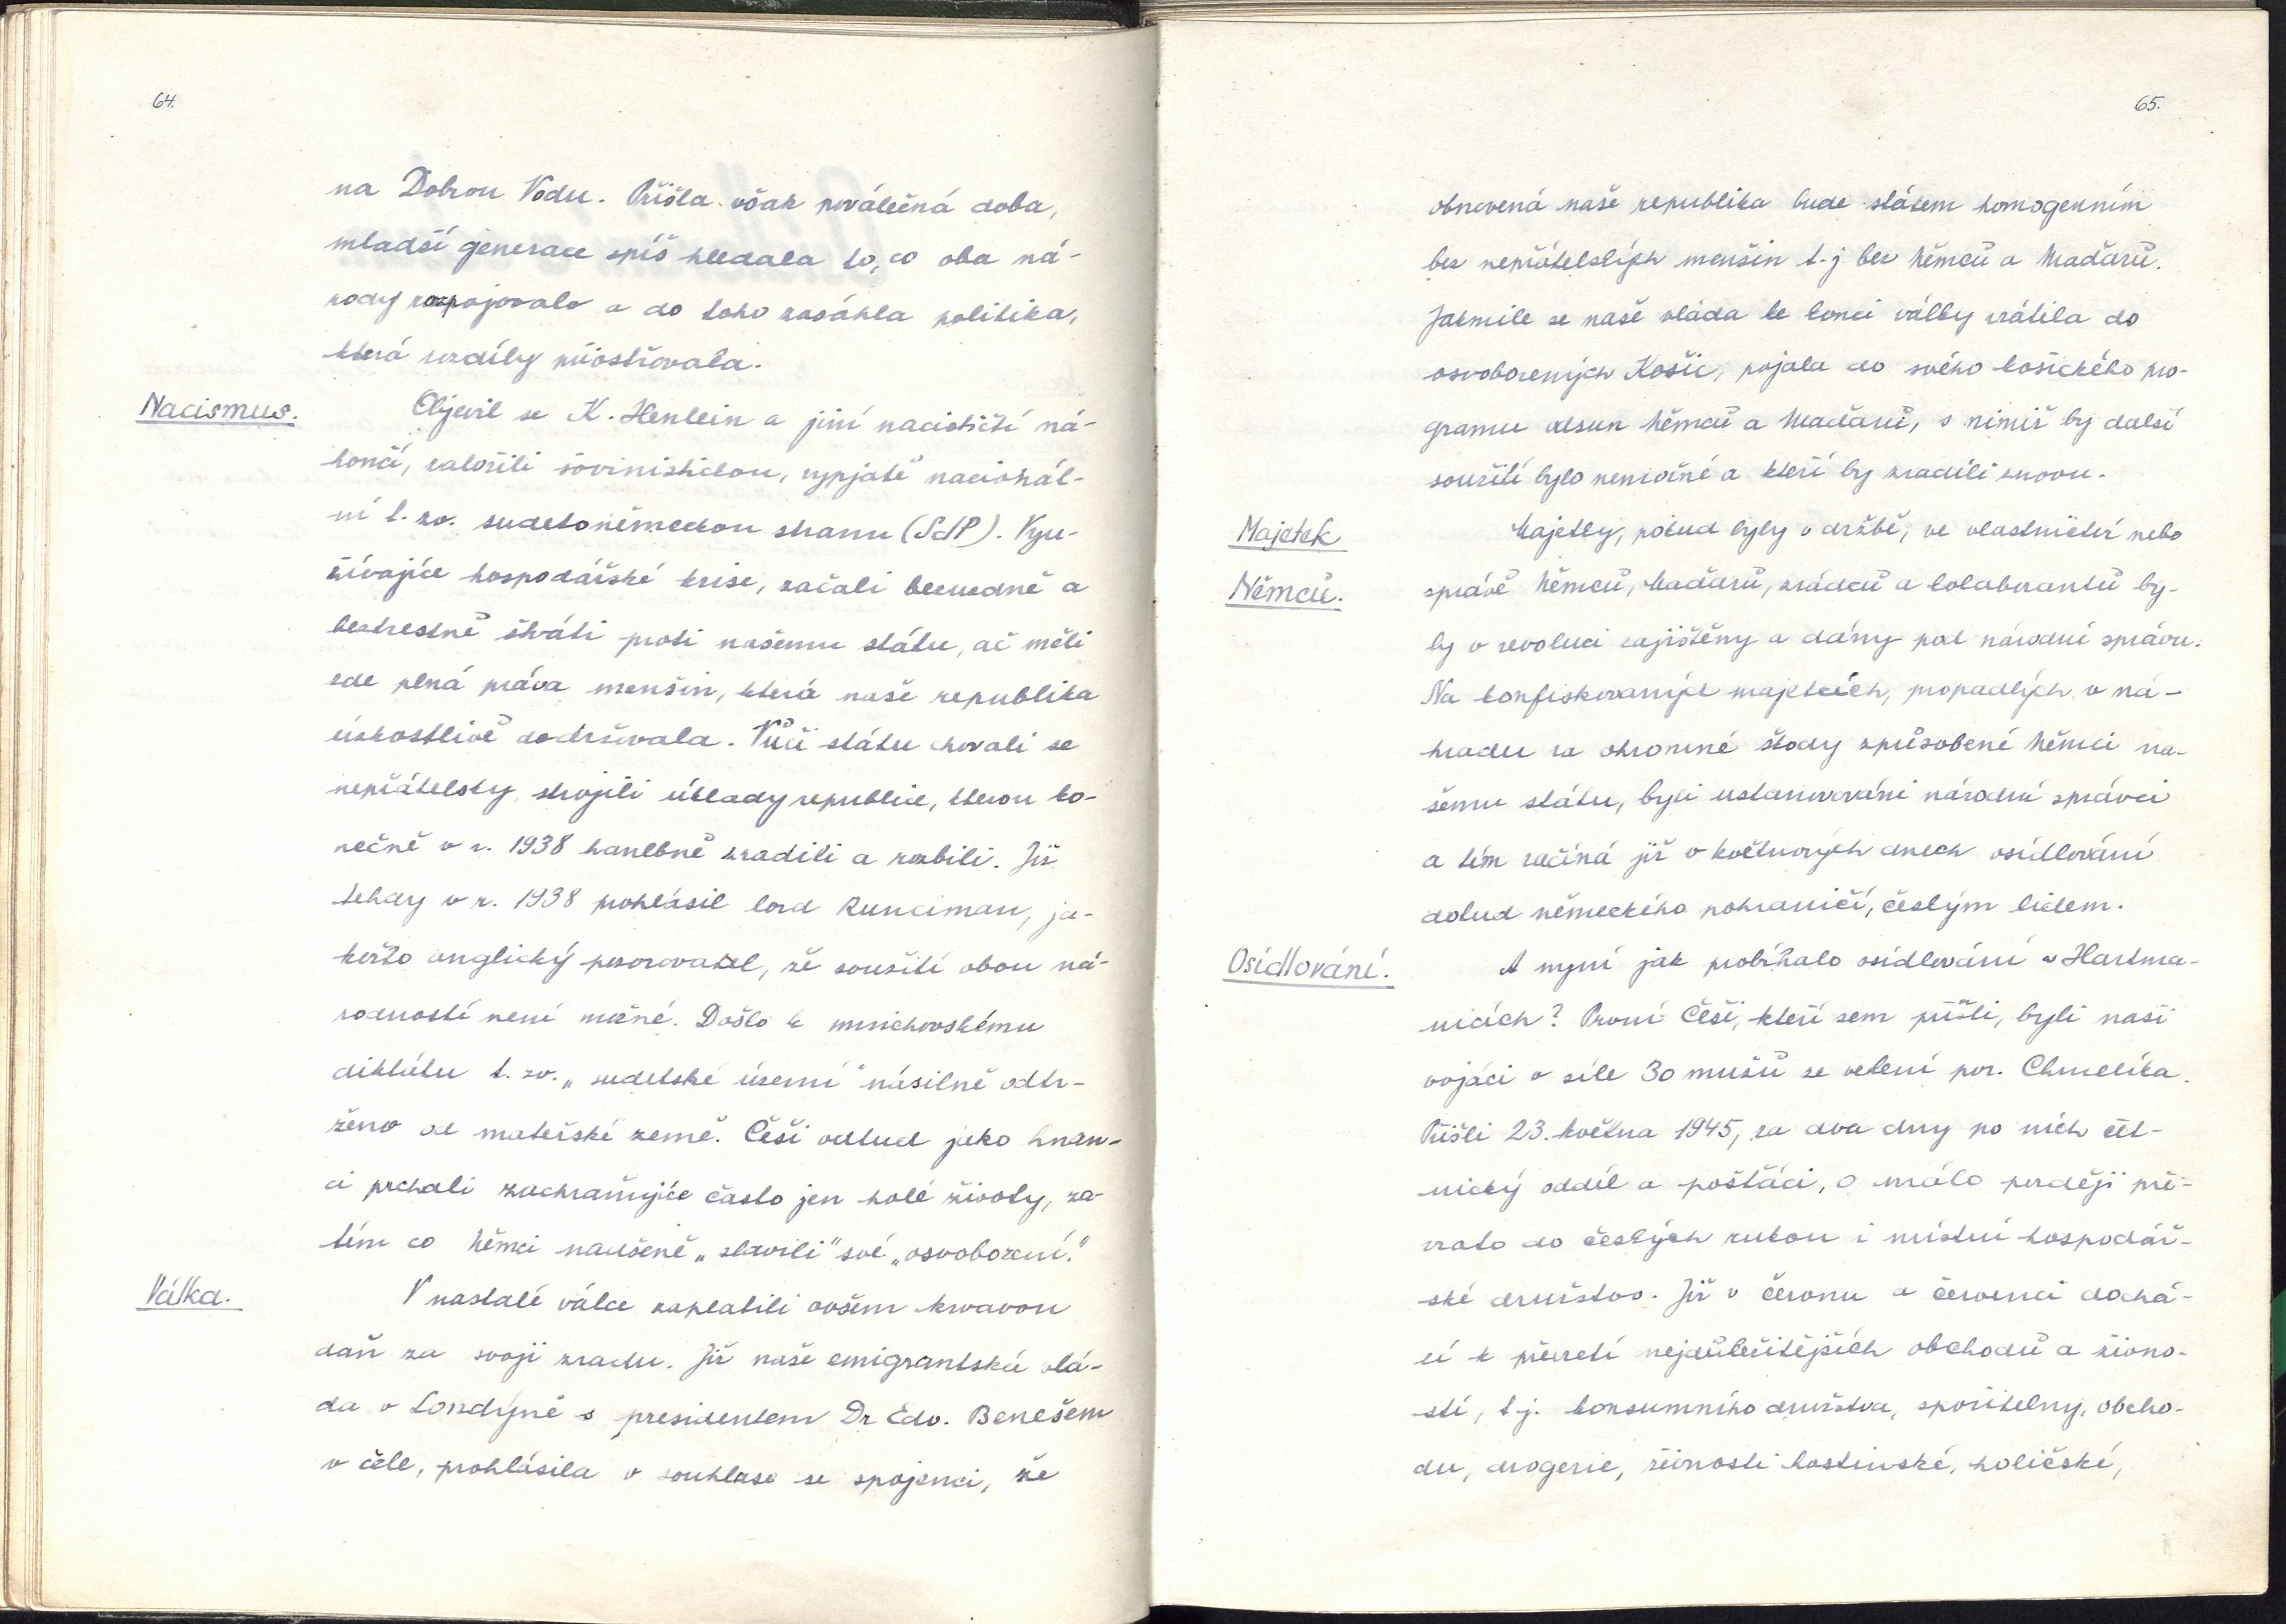 64.
na Dobrou Vodu. Přišla však poválečná doba,
mladší generace spíš hledala to, co oba ná-
rody rozpojovalo a do toho zasáhla politika,
která rozdíly přiostřovala.
Nacismus.
Objevil se K. Henlein a jiní nacističtí ná-
hončí, založili šovinistickou, vypjatě nacionál-
ní t. zv. sudetoněmeckou stranu (SdP). Vyu-
žívajíce hospodářské krise, začali bezuzdně a
beztrestně štváti proti našemu státu, ač měli
zde plná práva menšin, která naše republika
úzkostlivě dodržovala. Vůči státu chovali se
nepřátelsky, strojili úklady republice, kterou ko-
nečně v r. 1938 hanebně zradili a rozbili. Již
tehdy v r. 1938 prohlásil lord Runciman, ja-
kožto anglický pozorovatel, že soužití obou ná-
rodností není možné. Došlo k mnichovskému
diktátu t. zv. „sudetské území" násilně odtr-
ženo od mateřské země. Češi odtud jako hnan-
ci prchali zachraňujíce často jen holé životy, za-
tím co Němci nadšeně „slavili" své „osvobození."
Válka.
V nastalé válce zaplatili ovšem krvavou
daň za svoji zradu. Již naše emigrantská vlá-
da v Londýně s presidentem Dr Edv. Benešem
v čele, prohlásila v souhlase se spojenci, že
65.
obnovená naše republika bude státem homogenním
bez nepřátelských menšin t. j bez Němců a Maďarů.
Jakmile se naše vláda ke konci války vrátila do
osvobozených Košic, pojala do svého košického pro-
gramu odsun Němců a Maďarů, s nimiž by další
soužití bylo nemožné a kteří by zradili znovu.
Majetek
Němců.
Majetky, pokud byly v držbě, ve vlastnictví nebo
správě Němců, Maďarů, zrádců a kolaborantů by-
ly v revoluci zajištěny a dány pod národní správu.
Na konfiskovaných majetcích, propadlých v ná-
hradu za ohromné škody způsobené Němci na-
šemu státu, byli ustanovováni národní správci
a tím začíná již v květnových dnech osídlování
dotud německého pohraničí, českým lidem.
Osídlování.
A nyní jak probíhalo osídlování v Hartma-
nicích? První Češi, kteří sem přišli, byli naši
vojáci v síle 30 mužů ze velení por. Chmelíka.
Přišli 23. května 1945, za dva dny po nich čet-
nický oddíl a pošťáci, o málo později pře-
vzato do českých rukou i místní hospodář-
ské družstvo. Již v červnu a červenci dochá-
zí k převzetí nejdůležitějších obchodů a živno-
stí, t. j. konsumního družstva, spořitelny, obcho-
du, drogerie, živnosti hostinské, holičské,